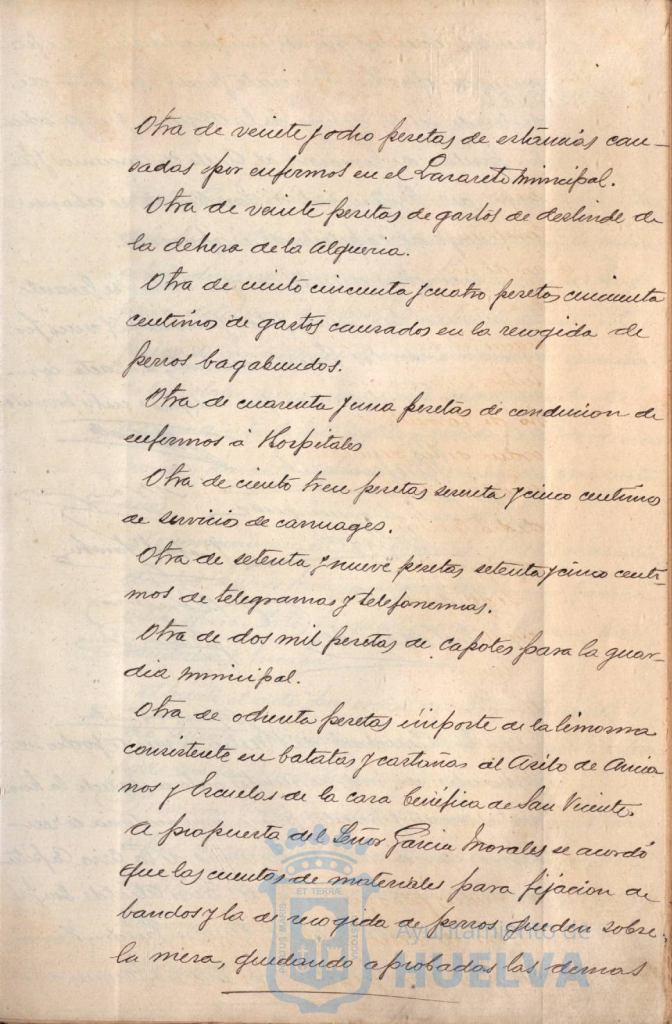 Otra de veinte y ocho pesetas de estancias cau-
sadas por enfermos en el Lazareto municipal.
Otra de veinte pesetas de gastos de deslinde de
la dehesa de la Alqueria.
Otra de ciento cincuenta y cuatro pesetas cincuenta
centimos de gastos causados en la recogida de
perros bagabundos.
Otra de cuarenta y una pesetas de conducion de
enfermos á Hospitales
Otra de ciento trece pesetas sesenta y cinco centimos
de servicios de carruages.
Otra de setenta y nueve pesetas setenta y cinco centi-
mos de telegramas y telefonemas.
Otra de dos mil pesetas de capotes para la guar-
dia municipal.
Otra de ochenta pesetas importe de la limosna
consistente en batatas y castañas al Asilo de Ancia
nos y Escuelas de la casa benéfica de San Vicente.
A propuesta del Señor García Morales se acordó
que las cuentas de materiales para fijacion de
bandos y la de recogida de perros queden sobre
la mesa, quedando aprobadas las demas
Ayuntamiento de
HUELVA